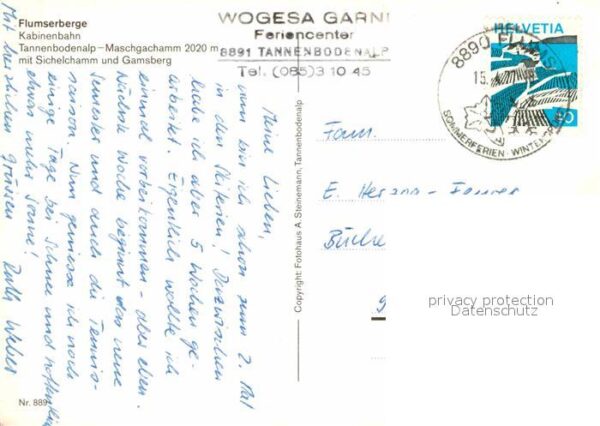 Flumserberge
Kabinenbahn
Tannenbodenalp – Maschgachamm 2020 m
mit Sichelchamm und Gamsberg
WOGESA GARNI
Feriencenter
8891 TANNENBODENALP
Tel. (085) 3 10 45
HELVETIA
8890 FLUMS
15.
SOMMERFERIEN · WINTER
Meine Lieben,
nun bin ich schon zum 2. Mal
in den Skiferien! Dazwischen
habe ich aber 5 Wochen ge-
arbeitet. Eigentlich wollte ich
einmal vorbeikommen – aber eben.
Nächste Woche beginnt das neue
Semester und auch die Tennis-
saison. Nun geniesse ich noch
einige Tage bei Schnee und hoffentlich
etwas mehr Sonne!
Mit herzlichen Grüssen Ruth Weber
Copyright: Fotohaus A. Steinemann, Tannenbodenalp
Fam.
E.
privacy protection
Datenschutz
Nr. 889